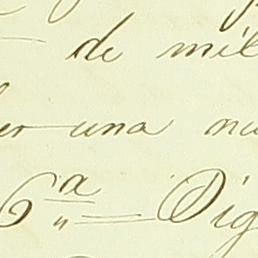 de mil
er una nu
6ª = Dig